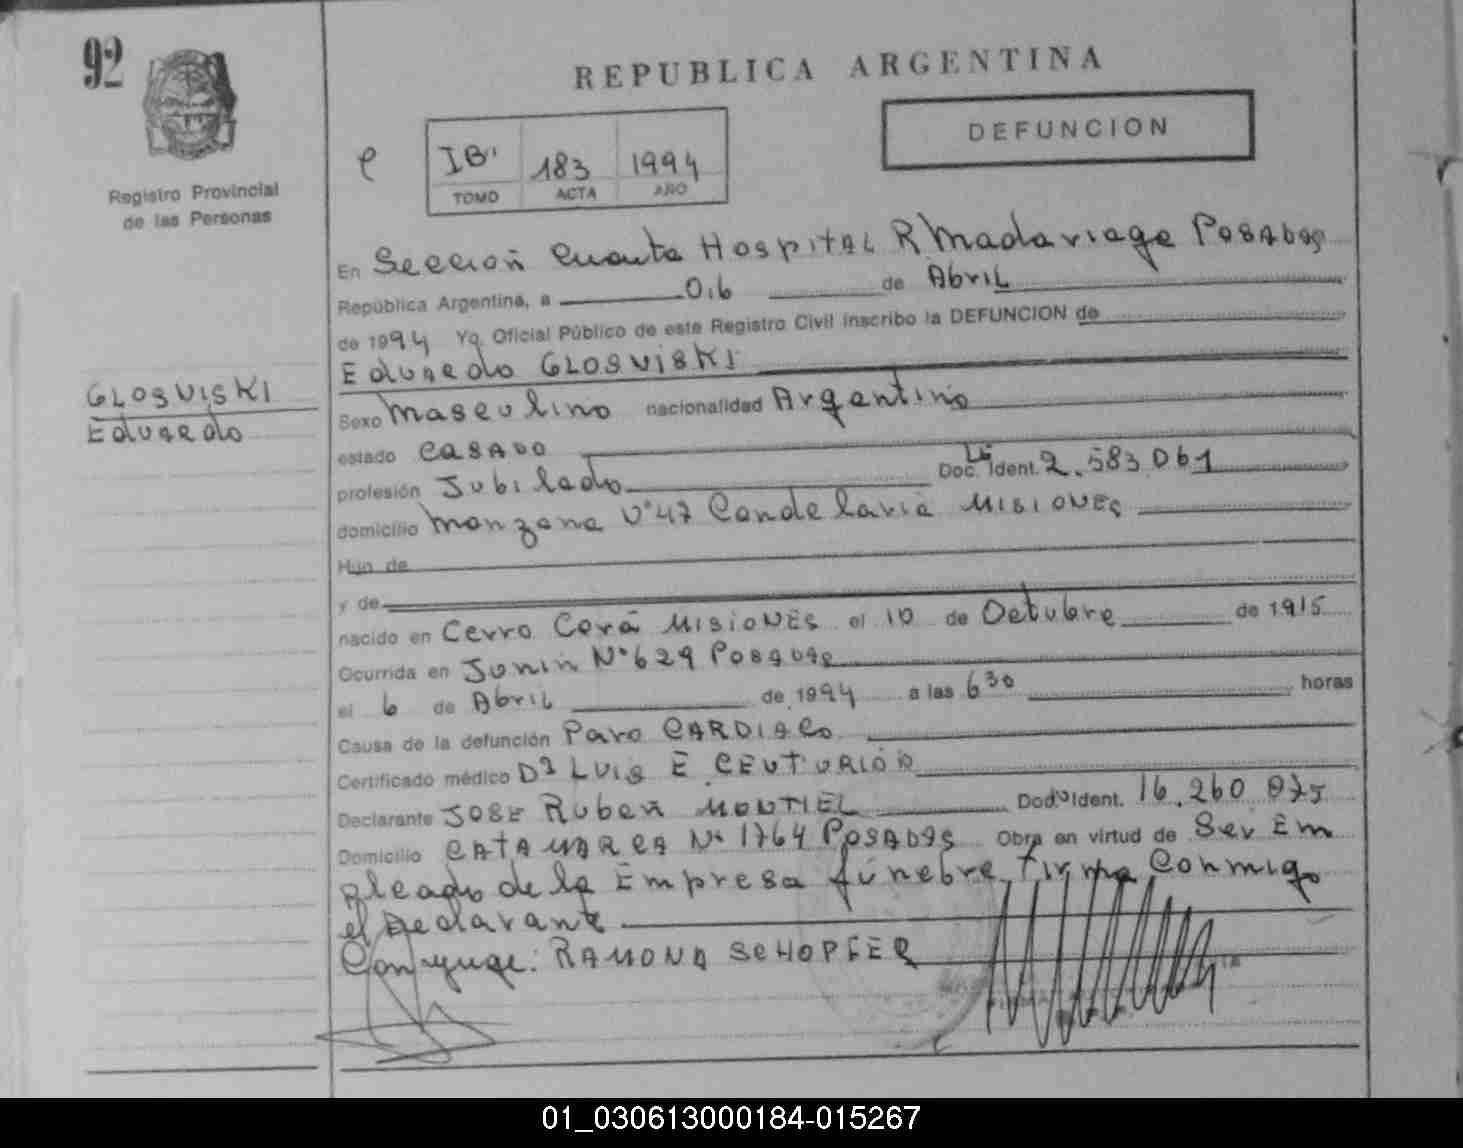 92
REPUBLICA ARGENTINA
DEFUNCION
IB' 183 1994
TOMO ACTA AÑO
Registro Provincial
de las Personas
En Sección Cuarta Hospital R Madariaga Posadas
República Argentina, a 06 de Abril
de 1994 Yo, Oficial Público de este Registro Civil inscribo la DEFUNCION de
Eduardo GLOSVISKI
GLOSVISKI
Eduardo
Sexo Masculino nacionalidad Argentino
estado CASADO
profesión Jubilado Doc. Ident. 2.583.061
domicilio Manzana N°47 Candelaria MISIONES
Hijo de
y de
nacido en Cerro Corá MISIONES el 10 de Octubre de 1915
Ocurrida en Junin N°629 Posadas
el 6 de Abril de 1994 a las 6 30 horas
Causa de la defunción Paro CARDIACO
Certificado médico Dr LUIS E CENTURIÓN
Declarante JOSE Ruben MONTIEL Doc. Ident. 16.260.975
Domicilio CATAMARCA N° 1764 POSADAS Obra en virtud de Ser Em
pleado de la Empresa fúnebre. Firma Conmigo
el Declarante
Conyuge: RAMONA SCHOPFER
01_030613000184-015267